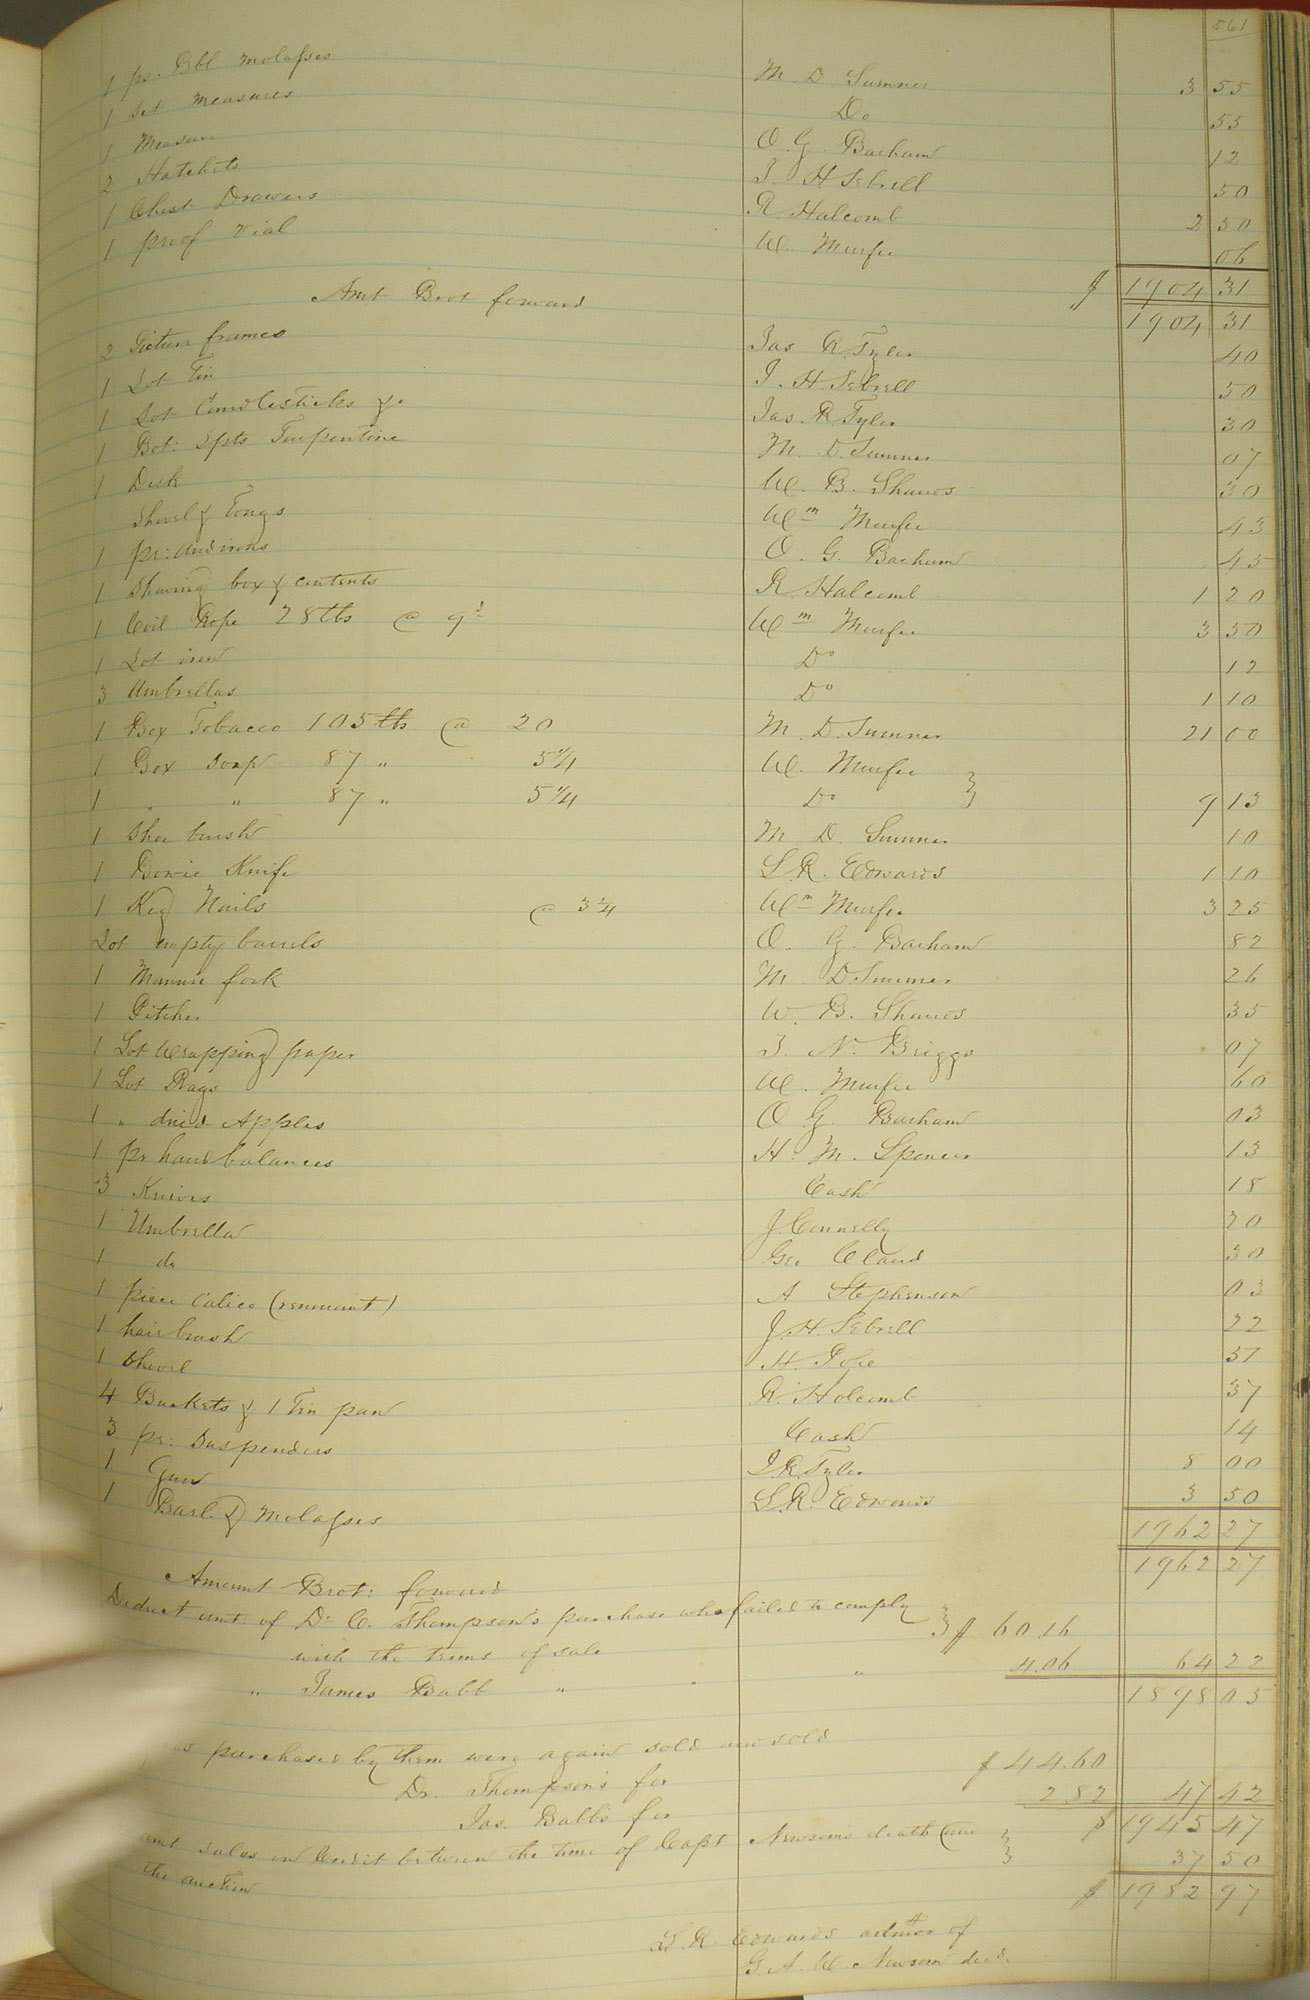 561
1 ps. Bbl Molasses M. D. Sumner 3 55
1 set Measures Do 55
1 Measure O. G. Barham 12
2 Hatchets J. H. Sebrell 50
1 Chest Drawers R Halcomb 2 50
1 proof Vial W. Murfee 06
$ 1904 31
Amt Brot forward 1904 31
2 Picture frames Jas R. Tyler 40
1 Lot Tin J. H. Sebrell 50
1 Lot Candlesticks &c Jas. R Tyler 30
1 Bot: Spts Turpentine M. D. Sumner 07
1 Desk W. B. Shands 30
Shovel & Tongs Wm Murfee 43
1 pr: Andirons O. G. Barham 45
1 Shaving box & contents R Halcomb 1 20
1 Coil Rope 28 lbs @ Wm Murfee 3 50
1 Lot iron Do 12
3 Umbrellas Do 1 10
1 Box Tobacco 105 lbs @ 20 M. D. Sumner 21 00
1 Box Soap 87 " 5 1/4 W. Murfee
1 " " 87 " 5 1/4 Do 9 13
1 Shoe brush M D. Sumner 10
1 Bowie Knife L. R. Edwards 1 10
1 Keg Nails @ 3 1/4 Wm Murfee 3 25
Lot empty barrels O. G. Barham 82
1 Manure fork M. D Sumner 26
1 Pitcher W. B. Shands 35
1 Lot Wrapping paper J. N. Briggs 07
1 Lot Rags W. Murfee 60
1 " dried Apples O G. Barham 03
1 pr hand balances H. M. Spencer 13
3 Knives Cash 18
1 Umbrella J. Connelly 20
1 do Geo Claud 30
1 piece Calico (remnant) A Stephenson 03
1 hair brush J. H. Sebrell 22
1 Shovel H. Pope 51
4 Buckets & 1 Tin pan R. Holcomb 37
3 pr: Suspenders Cash 14
1 Gun J. R. Tyler 8 00
1 Barl. Molasses L. R. Edwards 3 50
1962 27
Amount Brot: forward 1962 27
Deduct amt. of Dr C. Thompson's purchase who failed to comply
with the terms of sale $ 60.16
" James Babb " " 4.06 64 22
1898 05
purchased by them were again sold and sold
Dr. Thompson's for $ 44.60
Jas. Babb's for 2.82 47 42
$ 1945 47
amt sales on Credit between the time of Capt Newsom's death and
the auction 37 50
$ 1982 97
L. R. Edwards admor of
G. A. W. Newsom decd.